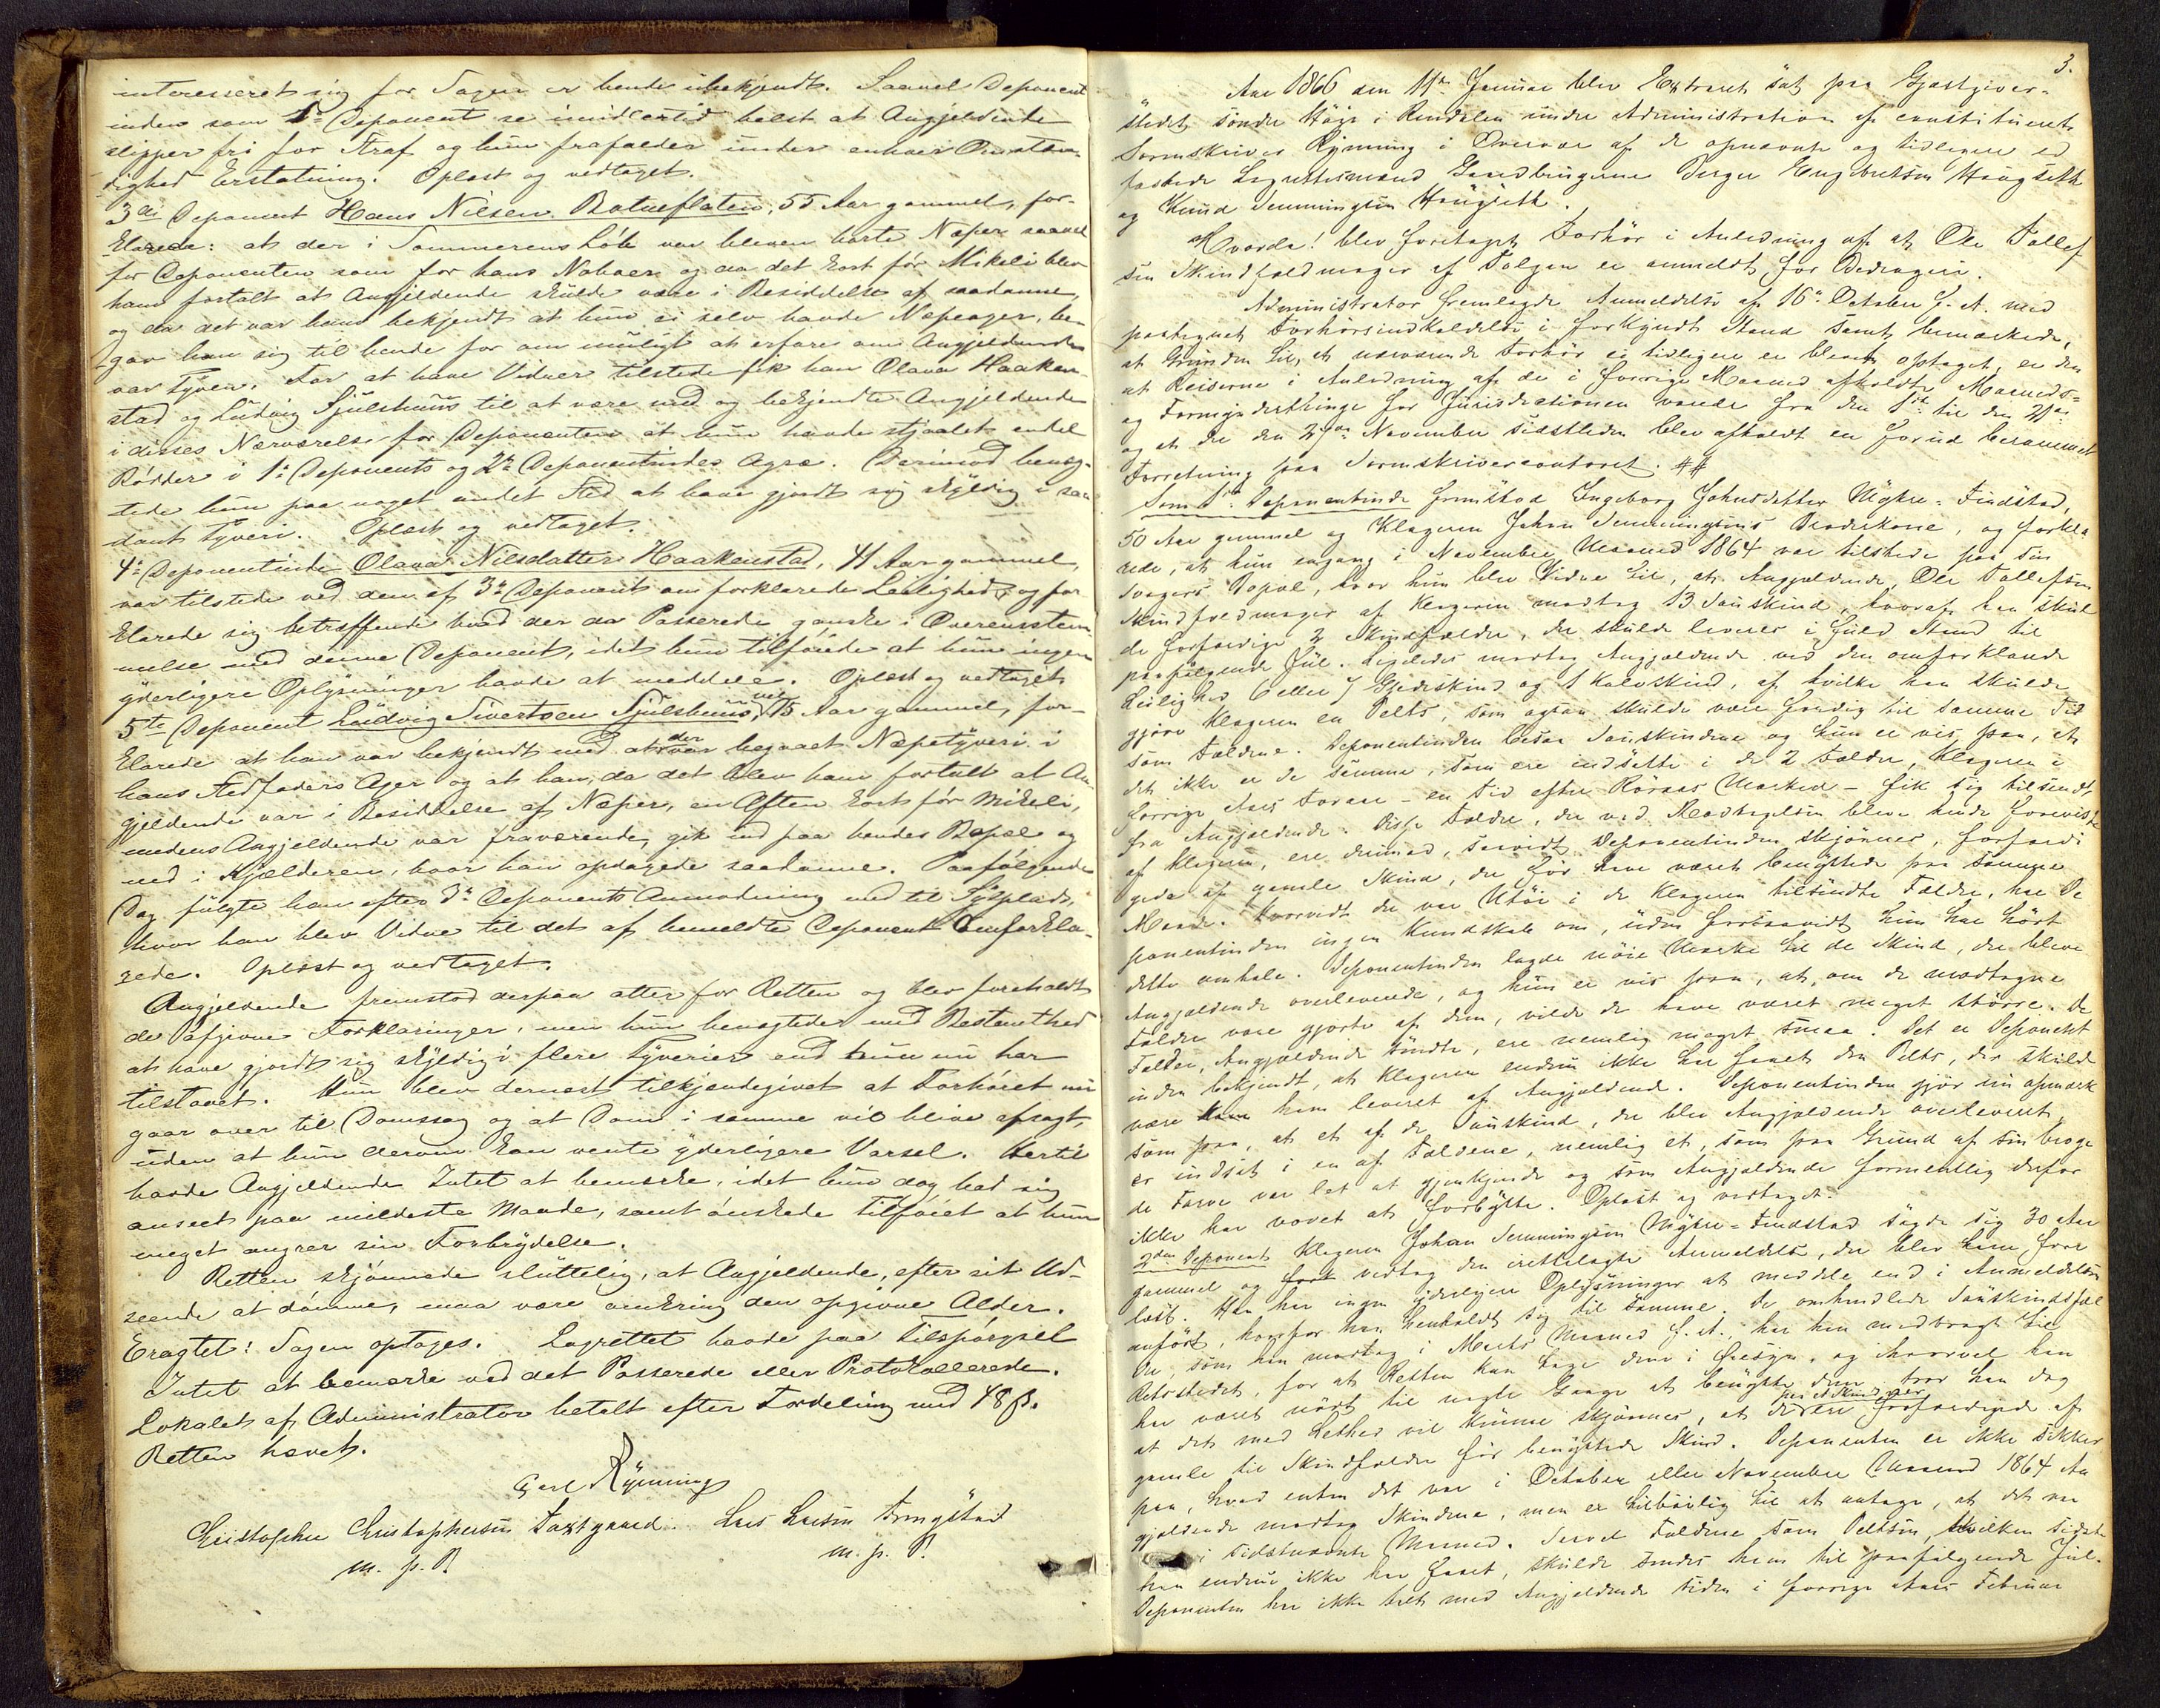 interesseret sig for Sagen er hende ubekjendt. Saavel Deponent
inden som 1ste Deponent se imidlertid helst at Angjeldende
slipper fri for Straf og hun frafalder under enhver Omstæn-
dighed Erstatning. Oplæst og vedtaget.
3die Deponent Hans Nilsen Batneflaten, 55 Aar gammel, for-
klarede: at der i Sommerens Löb var bleven borte Næper saavel
for Deponenten som for hans Naboer og da det kort för Mikeli blev
ham fortalt at Angjeldende skulde være i Besiddelse af saadanne,
og da det var ham bekjendt at hun ei selv havde Næpeager, be-
gav han sig til hende for om muligt at erfare om Angjeldende
var Tyven. For at have Vidner tilstede fik han Olava Haaken-
stad og Ludvig Sjulshuus til at være med og bekjendte Angjeldende
i disses Nærværelse for Deponenten at hun havde stjaalet endel
Rödder i 1ste Deponents og 2den Deponentindes Agre. Derimod benæg-
tede hun paa noget andet Sted at have gjordt sig skyldig i saa
dant Tyveri. Oplæst og vedtaget.
4de Deponentinde Olava Nilsdatter Haakenstad, 41 Aar gammel,
var tilstede ved den af 3die Deponent omforklarede Leilighed og for
klarede sig betræffende hvad der da Passerede ganske i Overensstem
melse med denne Deponent, idet hun tilföiede at hun ingen
yderligere Oplysninger havde at meddele. Oplæst og vedtaget
5te Deponent Ludvig Sivertsen Sjulshuus, 15 Aar gammel, for-
klarede at han var bekjendt med at der var begaaet Næpetyveri i
hans Stedfaders Ager og at han, da det blev ham fortalt at An-
gjeldende var i Besiddelse af Næper, en Aften kort för Mikeli,
medens Angjeldende var fraværende, gik ind paa hendes Bopæl og
ned i Kjælderen, hvor han opdagede saadanne. Paafölgende
Dag fulgte han efter 3die Deponents Anmodning med til Sysplads,
hvor han blev Vidne til det af bemeldte Deponent Omforkla-
rede. Oplæst og vedtaget.
Angjeldende fremstod derpaa atter for Retten og blev foreholdt
de afgivne Forklaringer, men hun benægtede med Bestemthed
at have gjordt sig skyldig i flere Tyverier end hun nu har
tilstaaet. Hun blev dernæst tilkjendegivet at Forhöret nu
gaar over til Domssag og at Dom i samme vil blive afsagt,
uden at hun derom kan vente yderligere Varsel. Hertil
havde Angjeldende Intet at bemærke, idet hun dog bad sig
anseet paa mildeste Maade, samt önskede tilföiet at hun
meget angrer sin Forbrydelse.
Retten skjönnede sluttelig, at Angjeldende, efter sit Ud-
seende at dömme, maa være omkring den opgivne Alder.
Eragtet: Sagen optages. Lagrettet havde paa Tilspörgsel
Intet at bemærke ved det Passerede eller Protokollerede.
Lokalet af Administrator betalt efter Fordeling med 48 ß.
Retten hævet.
Carl Rynning
Christopher Christophersen Taxtgaard. Lars Larsen Fringstad
m. p. P. m. p. P.
3.
Aar 1866 den 11te Januar blev Extraret sat paa Gjæstgiver-
stedet söndre Höge i Rendalen under Administration af constitueret
Sorenskriver Rynning i Overvær af de opnævnte og tidligere ed
fæstede Lagrettesmænd Gaardbrugerne Peder Engebretsen Haugseth
og Knud Simmingsen Haugseth.
Hvorda! blev foretaget Forhör i Anledning af at Ole Tollef
sen Skindfeldmager af Tolgen er anmeldt for Bedrageri.
Administrator fremlagde Anmeldelse af 16de October f. A. med
paategnet Forhörsindkaldelse i forkyndt Stand samt bemærkede,
at Grunden til, at nærværende Forhör ei tidligere er bleven optaget, er den
at Reiserne i Anledning af de i forrige Maaned afholdte Maaneds-
og Formynderthinge for Jurisdictionen varede fra den 1ste til den 21de
og at der den 29de November sidstleden blev afholdt en forud berammet
Forretning paa Sorenskrivercontoret. ##
Som 1ste Deponentinde fremstod Ingeborg Johnsdatter Nykre-Findstad,
50 Aar gammel og Klageren Johan Semmingsens Broderkone, og forkla
rede, at hun engang i November Maaned 1864 var tilstede paa sin
Svogers Bopæl, hvor hun blev Vidne til, at Angjældende, Ole Tollefsen
Skindfeldmager af Klageren modtog 13 Saueskind, hvoraf han skul
de forfærdige 2 Skindfælder, der skulde leveres i fuld Stand til
paafölgende Jul. Ligeledes modtog Angjældende ved den omforklarede
Leilighed 6 eller 7 Gjedeskind og 1 Kalvskind, af hvilke han skulde
gjöre Klageren en Pelts, som ogsaa skulde være færdig til samme Tid
som Fældene. Deponentinden besaa Saueskindene og hun er vis paa, at
det ikke er de samme, som ere indsatte i de 2 Fælder, Klageren i
forrige Aars Foraar - en Tid efter Röraas Marked - fik sig tilsendt
fra Angjældende. Disse Fælder, der ved Modtagelsen bleve hende foreviste
af Klageren, ere derimod, saavidt Deponentinden skjönner, forfær-
digede af gamle Skind, der för have været benyttede paa samme
Maade. Hvorvidt der var Utöi i de Klageren tilsendte Fælder, har De
ponentinden ingen Kundskab om, uden forsaavidt hun har hört
dette omtale. Deponentinden lagde nöie Mærke til de Skind, der bleve
Angjældende overleverede, og hun er vis paa, at, om de modtagne
Fælder vare gjorte af dem, vilde de have været meget större. De
Fælder, Angjældende sendte, ere nemlig meget smaa. Det er Deponent
inden bekjendt, at Klageren endnu ikke har faaet den Pelts, der skulde
være ham leveret af Angjældende. Deponentinden gjör nu opmærk
som paa, at et af de Saueskind, der blev Angjældende overleveret,
er indsat i en af Fældene, nemlig et, som paa Grund af sin broge
de Farve var let at gjenkjende og som Angjældende formentlig derfor
ikke har vovet at forbytte. Oplæst og vedtaget.
2den Deponent Klageren Johan Semmingsen Nykre-Findstad sagde sig 30 Aar
gammel og vedtog den irettelagte Anmeldelse, der blev ham fore
læst. Han har ingen yderligere Oplysninger at meddele end i Anmeldelsen
anfört, hvorfor han henholdt sig til samme. De omhandlede Saueskindsfæl
der, som han modtog i Marts Maaned f. A., har han medbragt til
Retsstedet, for at Retten kan tage dem i Øiesyn, og skjönt han
har været nödt til nogle Gange at benytte dem, tror han dog
at det med Lethed vil kunne skjönnes, at de ere forfærdigede af
gamle til Skindfælder för benyttede Skind. Deponenten er ikke sikker
paa, hvad enten det var i October eller November Maaned 1864 An
gjældende modtog Skindene, men er tilböielig til at antage, at det var
i sidstnævnte Maaned. Saavel Fældene som Peltsen, hvilken sidste
han endnu ikke har faaet, skulde sendes ham til paafölgende Jul.
Deponenten har ikke talt med Angjældende siden i forrige Aars Februar